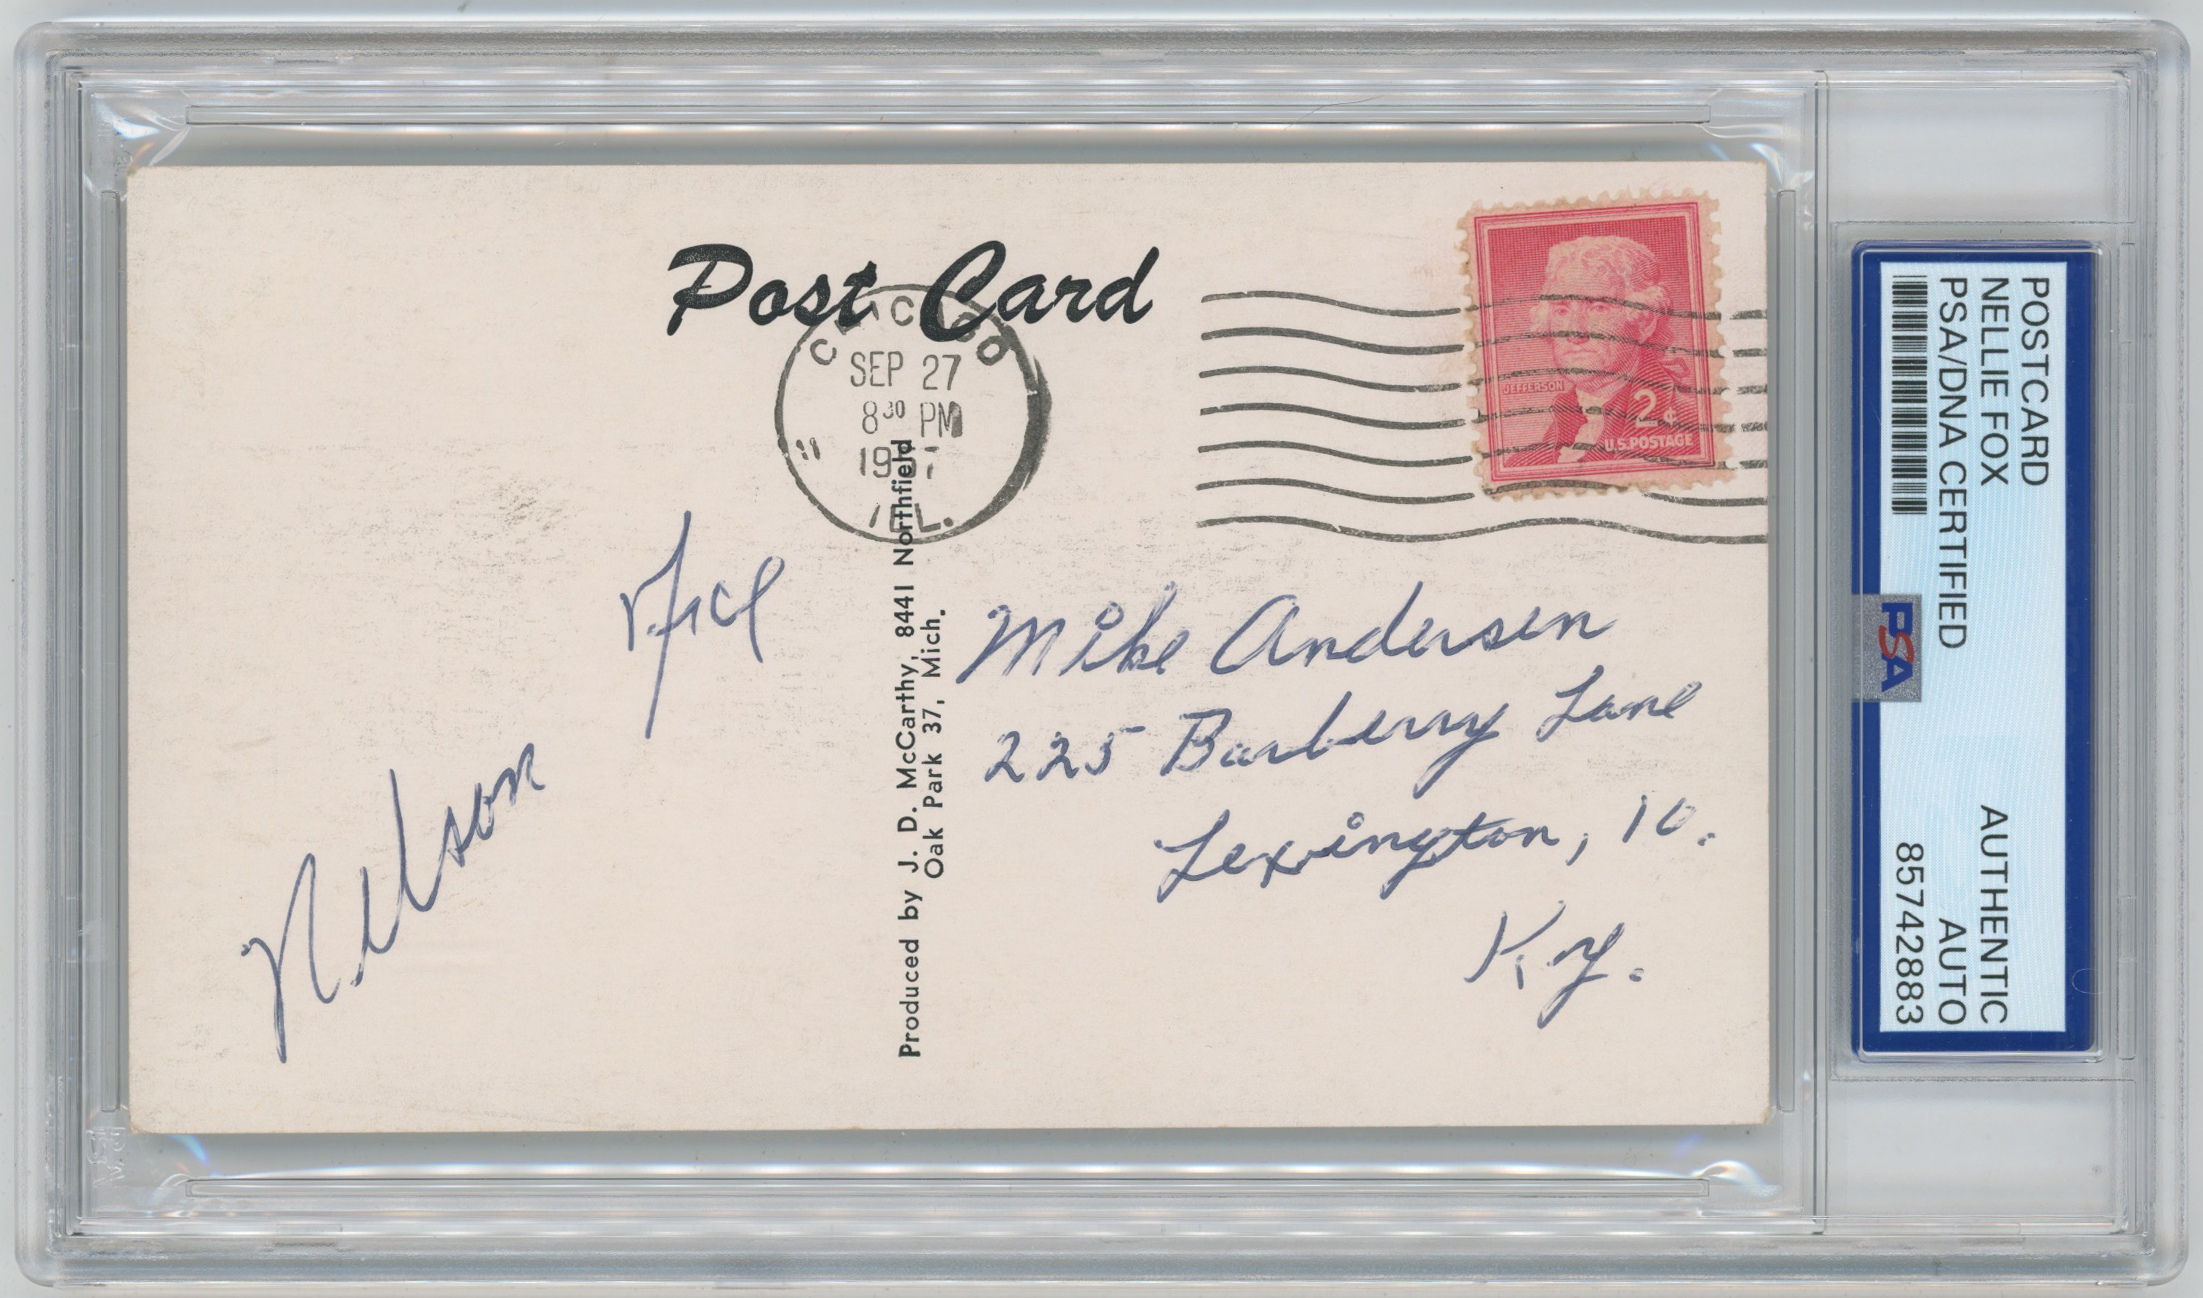 Post Card
CHICAGO
SEP 27
8 30 PM
1957
ILL.
JEFFERSON
2¢
U.S. POSTAGE
Nelson Fox
Produced by J. D. McCarthy, 8441 Northfield
Oak Park 37, Mich.
Mike Andersen
225 Barberry Lane
Lexington, 10.
Ky.
POSTCARD
NELLIE FOX
PSA/DNA CERTIFIED
AUTHENTIC
AUTO
85742883
PSA